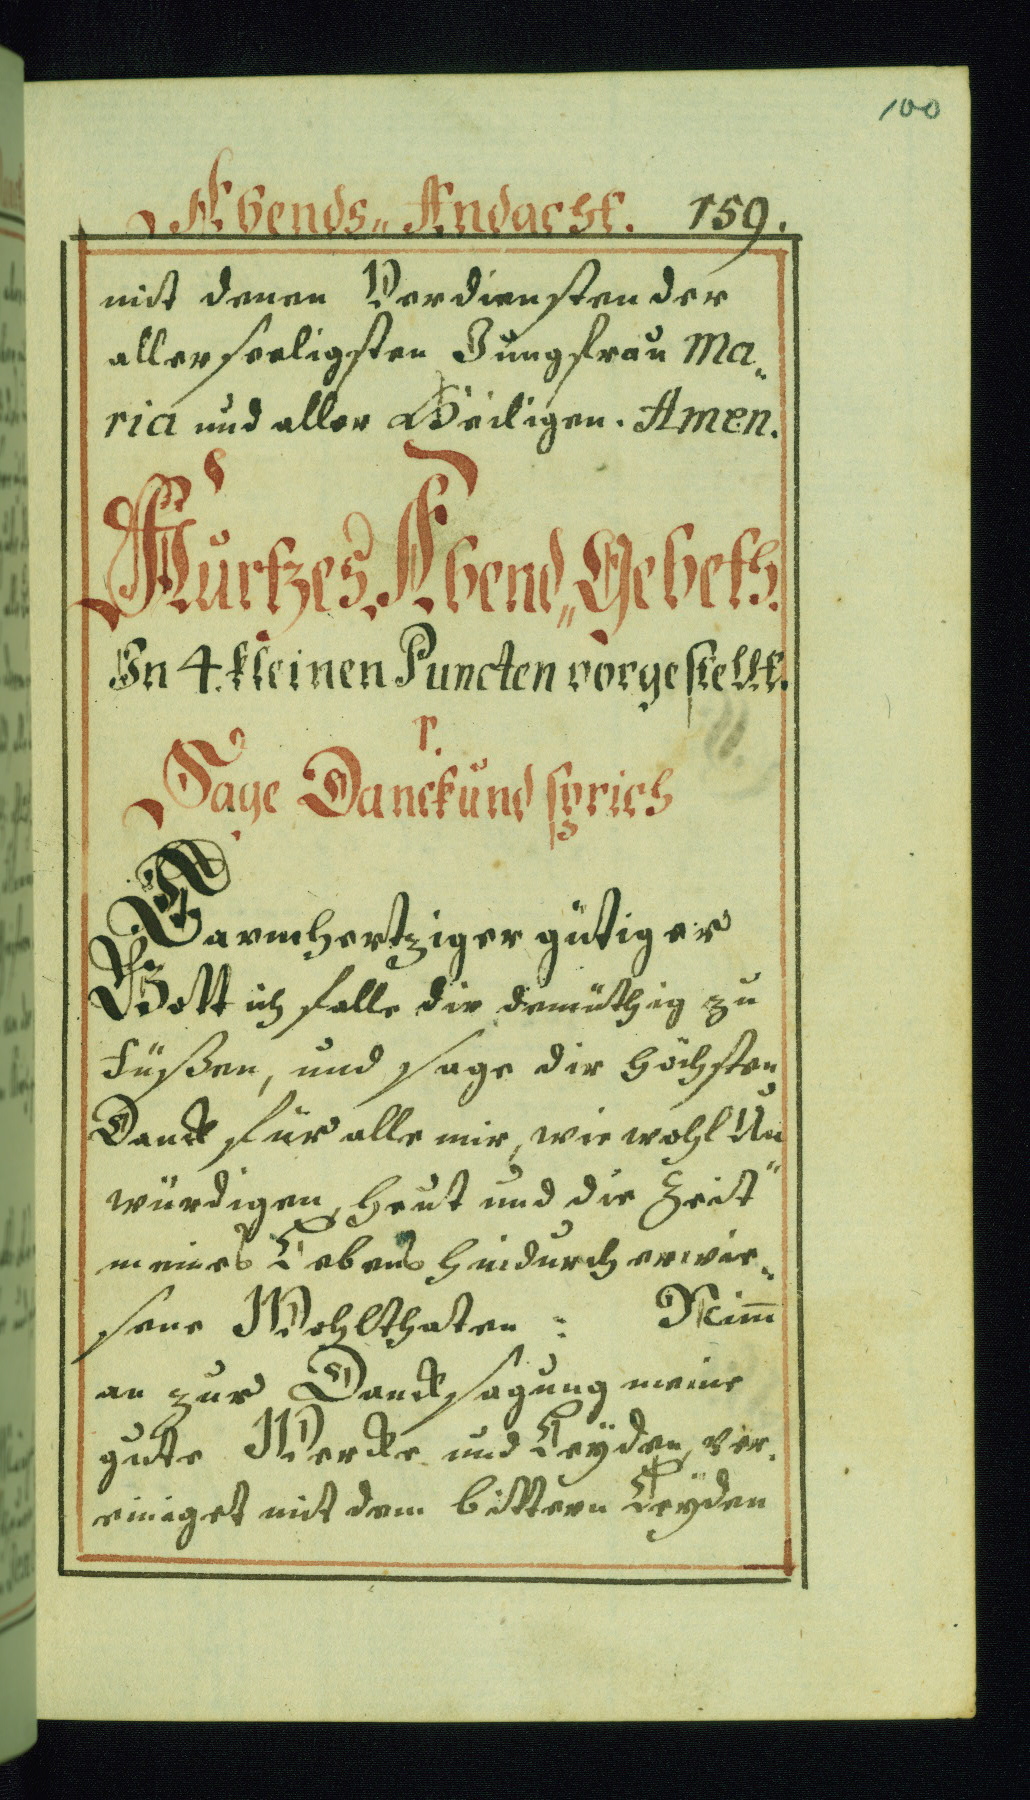 100
Abends„ Andacht. 159.
mit denen Verdiensten der
allerseeligsten Jungfrau Ma„
ria und aller Heiligen. Amen.
Kurtzes Abend„ Gebeth.
In 4. kleinen Puncten vorgestellt.
1.
Sage Danck und sprich
Barmhertziger gütiger
Gott ich falle dir demüthig zu
Füßen, und sage dir höchsten
Danck für alle mir, wie wohl Un„
würdigen, heut und die Zeit
meines Lebens hindurch erwie„
sene Wohlthaten : Nim̄
an zur Dancksagung meine
gute Wercke und Leÿden, ver„
einiget mit dem bittern Leÿden